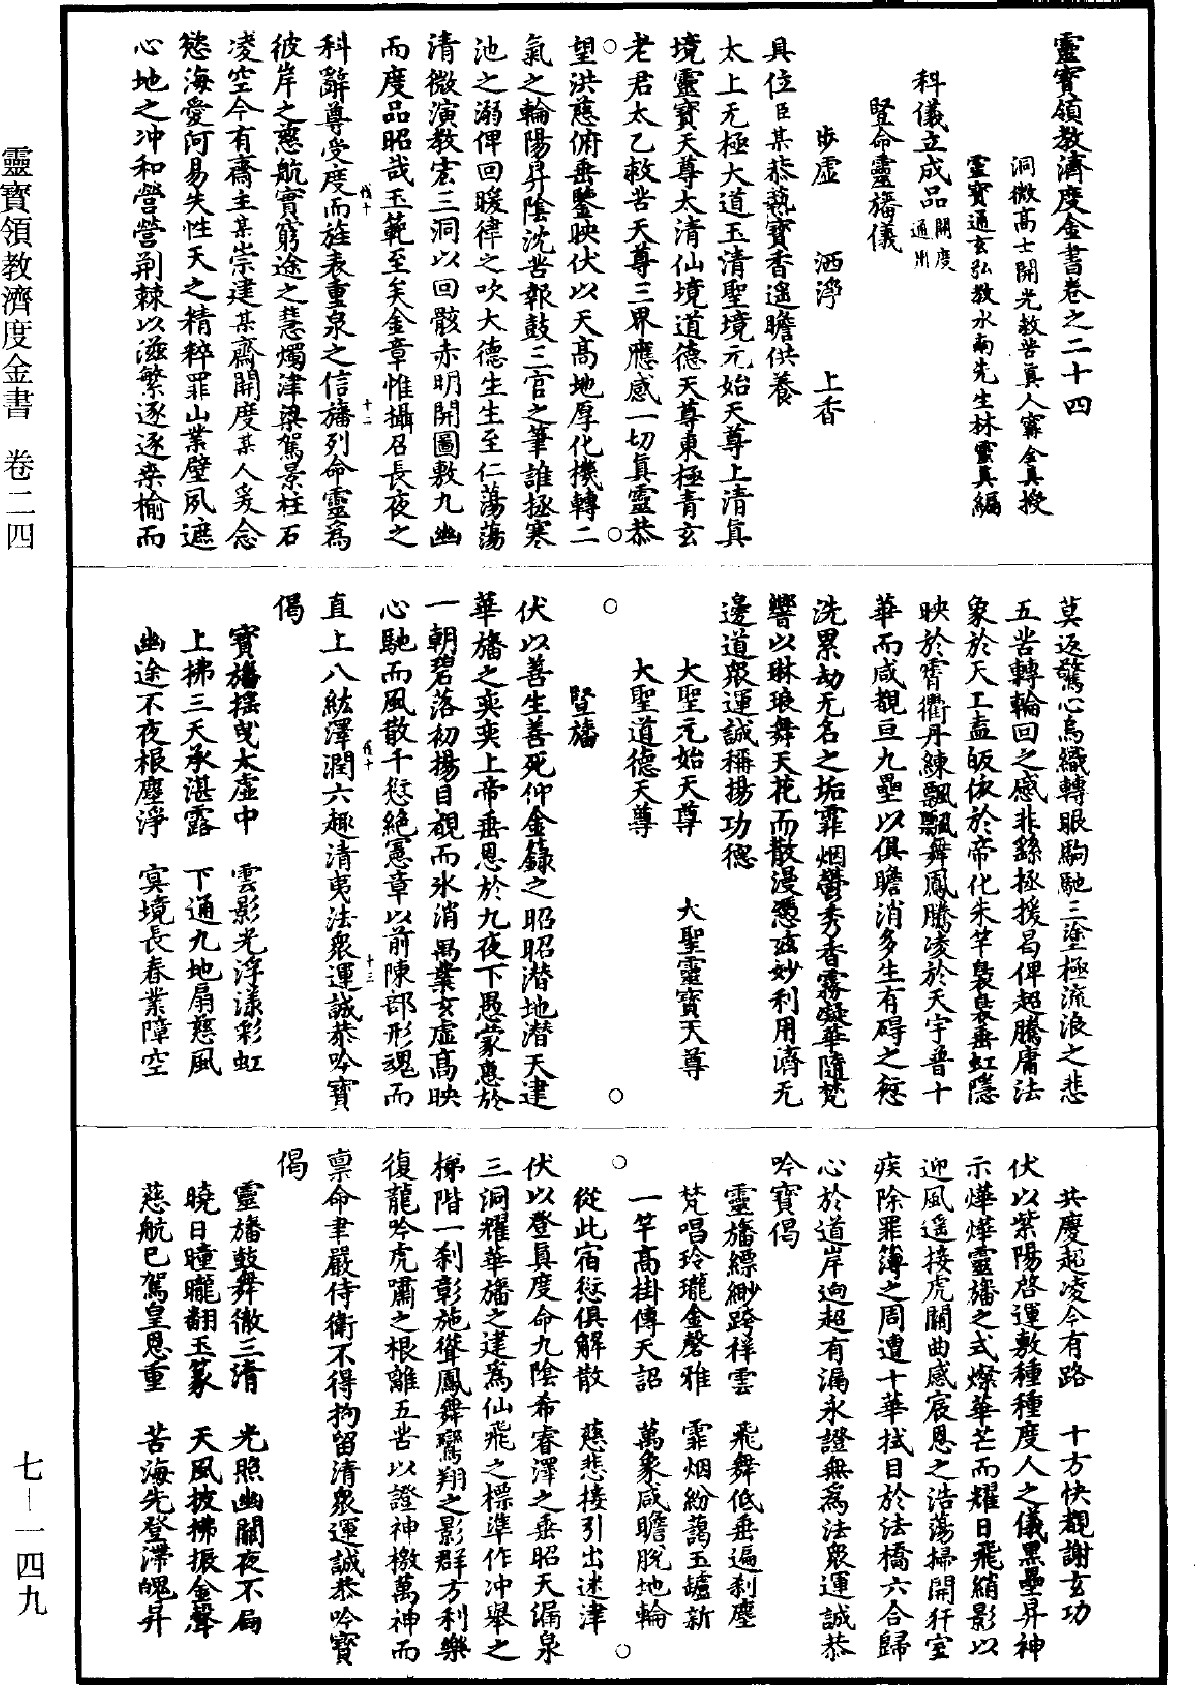 靈寶領教濟度金書卷之二十四
洞微高士開光救苦真人寗全真授
靈寶通玄弘教水南先生林靈真編
科儀立成品開度通用
豎命靈旛儀
步虛　洒淨　上香
具位臣某恭爇寶香遥瞻供養
太上无極大道玉清聖境元始天尊上清真
境靈寶天尊太清仙境道德天尊東極青玄
老君太乙救苦天尊三界應感一切真靈恭
望洪慈俯垂鑒映伏以天高地厚化機轉二
氣之輪陽昇陰沈苦報鼓三官之筆誰拯寒
池之溺俾回暖律之吹大德生生至仁蕩蕩
清微演教宏三洞以回骸赤明開圖敷九幽
而度品昭哉玉範至矣金章惟攝召長夜之
科辭尊受度而旌表重泉之信旛列命靈爲
彼岸之慈航實窮途之慧燭津梁駕景柱石
凌空今有齋主某崇建某齋開度某人爰念
慾海愛河易失性天之精粹罪山業壁夙遮
心地之冲和營營荆棘以滋繁逐逐桑榆而
莫返驚心烏織轉眼駒馳三塗極流浪之悲
五苦轉輪回之感非繇拯援曷俾超騰庸法
象於天工盍皈依於帝化朱竿裊裊垂虹隱
映於霄衢丹練飄飄舞鳳騰凌於天宇普十
華而咸覩亘九壘以俱瞻消多生有碍之愆
洗累劫无名之垢霏烟鬱秀香霧凝華隨梵
響以琳琅舞天花而散漫憑玆妙利用濟无
邊道衆運誠稱揚功德
大聖元始天尊　大聖靈寶天尊
大聖道德天尊
豎旛
伏以善生善死仰金籙之昭昭潛地潛天建
華旛之奕奕上帝垂恩於九夜下愚蒙惠於
一朝碧落初揚目覩而氷消禺業玄虛高映
心馳而風散千愆絕憲章以前陳部形魂而
直上八紘澤潤六趣清夷法衆運誠恭吟寶
偈
寶旛摇曳太虛中　雲影光浮漾彩虹
上拂三天承湛露　下通九地扇慈風
幽途不夜根塵淨　寞境長春業障空
共慶超凌今有路　十方快覩謝玄功
伏以紫陽啓運敷種種度人之儀黑壘昇神
示燁燁靈旛之式燦華芒而耀日飛綃影以
迎風遥接虎關曲感宸恩之浩蕩掃開犴室
疾除罪簿之周遭十華拭目於法橋六合歸
心於道岸逈超有漏永證無爲法衆運誠恭
吟寶偈
靈旛縹緲跨祥雲　飛舞低垂遍刹塵
梵唱玲瓏金磬雅　霏烟紛藹玉罏新
一竿高掛傳天詔　萬象咸瞻脫地輪
從此宿愆俱解散　慈悲接引出迷津
伏以登真度命九陰希睿澤之垂昭天漏泉
三洞耀華旛之建爲仙飛之標準作冲舉之
梯階一刹彰施聳鳳舞鸞翔之影群方利樂
復龍吟虎嘯之根離五苦以證神檄萬神而
禀命聿嚴侍衛不得拘留清衆運誠恭吟寶
偈
靈旛鼓舞徹三清　光照幽關夜不扃
曉日曈曨翻玉篆　天風披拂振金聲
慈航已駕皇恩重　苦海先登滯魄昇
靈寶領教濟度金書　卷二四
七—一四九